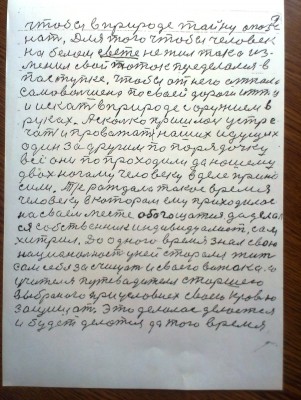 чтобы в природе тайну опоз
нат. Для того чтобы человек
на белом свете не жил так а из
менил свой поток переделался в
поступке. чтобы от него отпало
самовольшено по своей дороги итти
и искат в природе с оружием в
руках. А сколко пришлос устре
чат и провожат наших идущих
один за другим по порядочку
всё они по проходили данному
двох ногаму человеку в деле прино
сили. Те рождал такое время
человеку в котором ему приходилос
на своем месте обогощатся да делал
ся собственник индивидуалист, сам
хитрил. До одного время знал свою
национальност у ней старалс жит
сам себя защищат и своего вотока. и
учителя путеводителя старшего
выбраного при условиях своею кровю
защищат. Это делалос делается
и будет делатся до того время